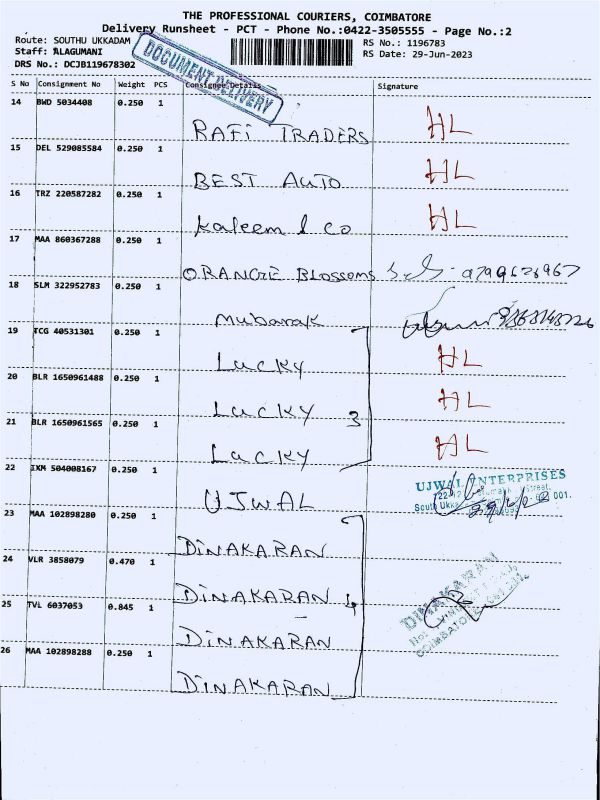 THE PROFESSIONAL COURIERS, COIMBATORE
Delivery Runsheet - PCT - Phone No.:0422-3505555 - Page No.:2
Route: SOUTHU UKKADAM
RS No.: 1196783
Staff: ALAGUMANI
RS Date: 29-Jun-2023
DRS No.: DCJB119678302
DOCUMENT DELIVERY
S No Consignment No Weight PCS Consignee Details Signature
14 BWD 5034408 0.250 1
RAFI TRADERS HL
15 DEL 529085584 0.250 1
BEST AUTO HL
16 TRZ 220587282 0.250 1
Kaleem & co HL
17 MAA 860367288 0.250 1
ORANGE BLOSSOMS
18 SLM 322952783 0.250 1
Mubarak
19 TCG 40531301 0.250 1
LUCKY HL
20 BLR 1650961488 0.250 1
LUCKY 3 HL
21 BLR 1650961565 0.250 1
LUCKY HL
22 IXM 504008167 0.250 1
UJWAL
UJWAL ENTERPRISES
Street,
South Ukk 001.
23 MAA 102898280 0.250 1
DINAKARAN
24 VLR 3858079 0.470 1
DINAKARAN 4
DINAKARAN
COIMBATORE
25 TVL 6037053 0.845 1
DINAKARAN
26 MAA 102898288 0.250 1
DINAKARAN